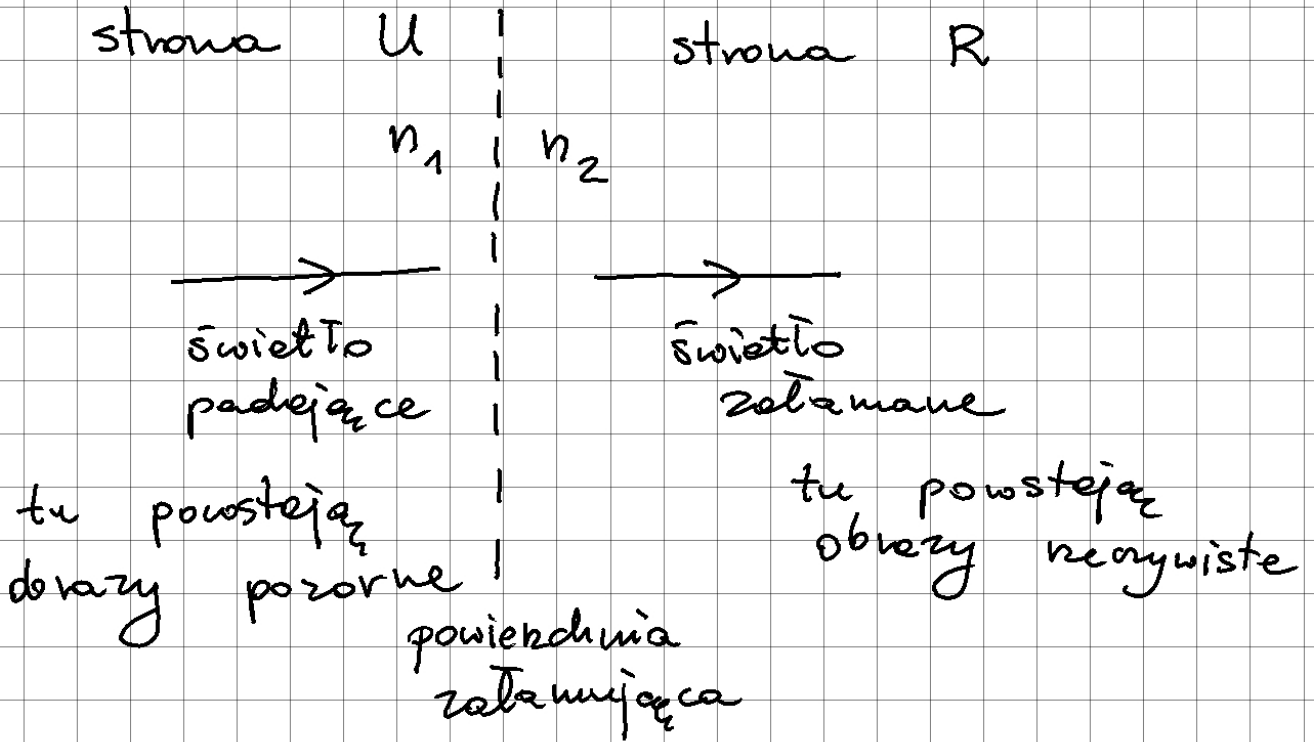 strona U
strona R
n₁
n₂
światło
padające
światło
załamane
tu powstają
obrazy pozorne
tu powstają
obrazy rzeczywiste
powierzchnia
załamująca